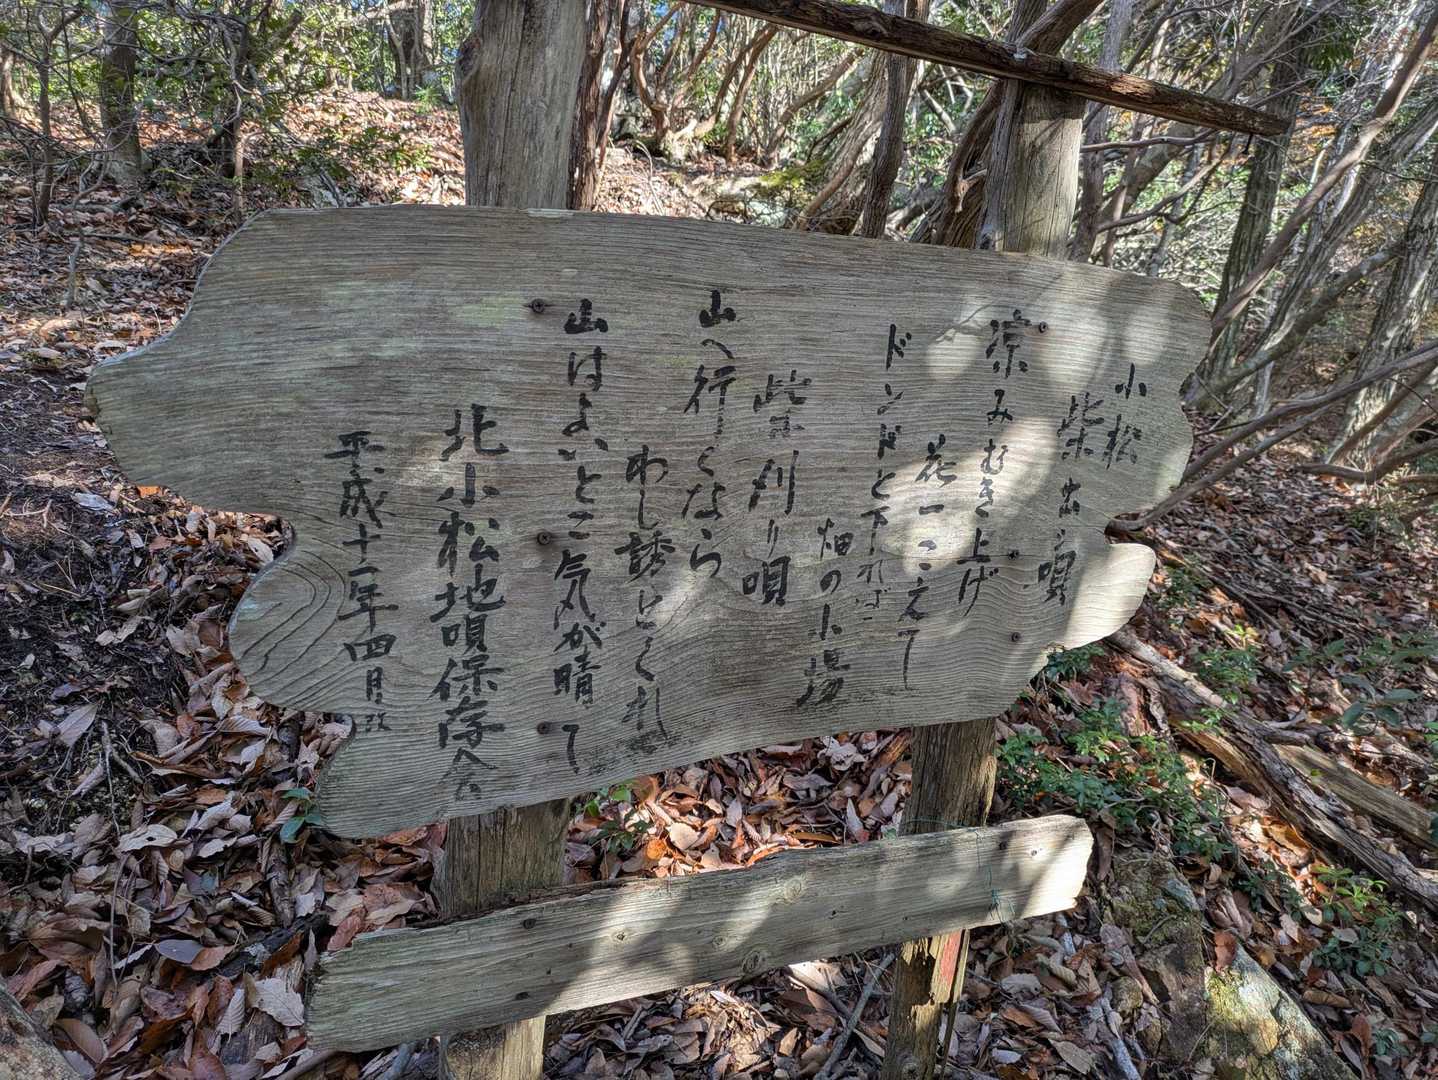 小松
柴出し唄
涼みむき上げ
花一つこえて
ドンドと下れば
畑の小場
柴刈り唄
山へ行くなら
わし誘とくれ
山はよいとこ気が晴て
北小松地唄保存会
平成十一年四月改